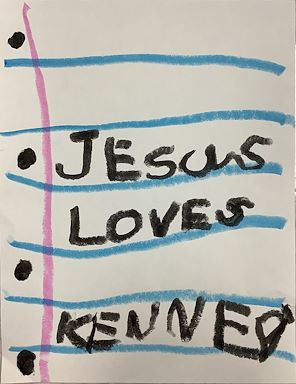 JESUS
LOVES
KENNED